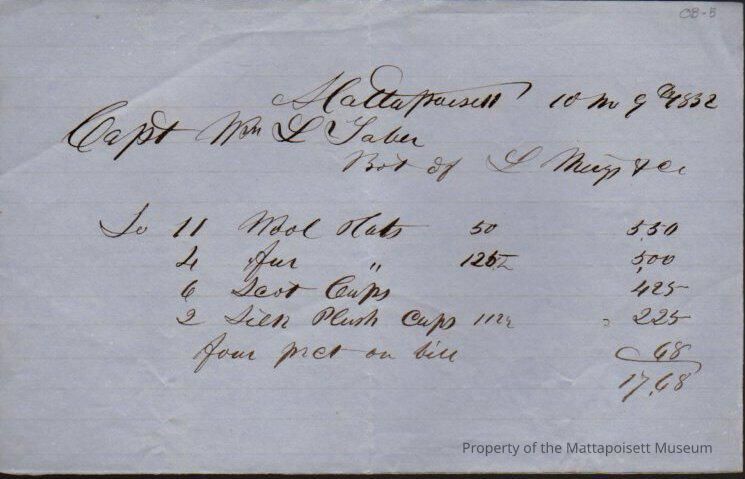 CB-5
Mattapoisett 10 m 9th 1852
Capt Wm L Taber
Bot of L Meigs & Co
To 11 Wool Hats 50 5.50
4 Fur " 125 5.00
6 Scot Caps 4.25
2 Silk Plush Caps 112½ 2.25
four prct on bill 68
17.68
Property of the Mattapoisett Museum